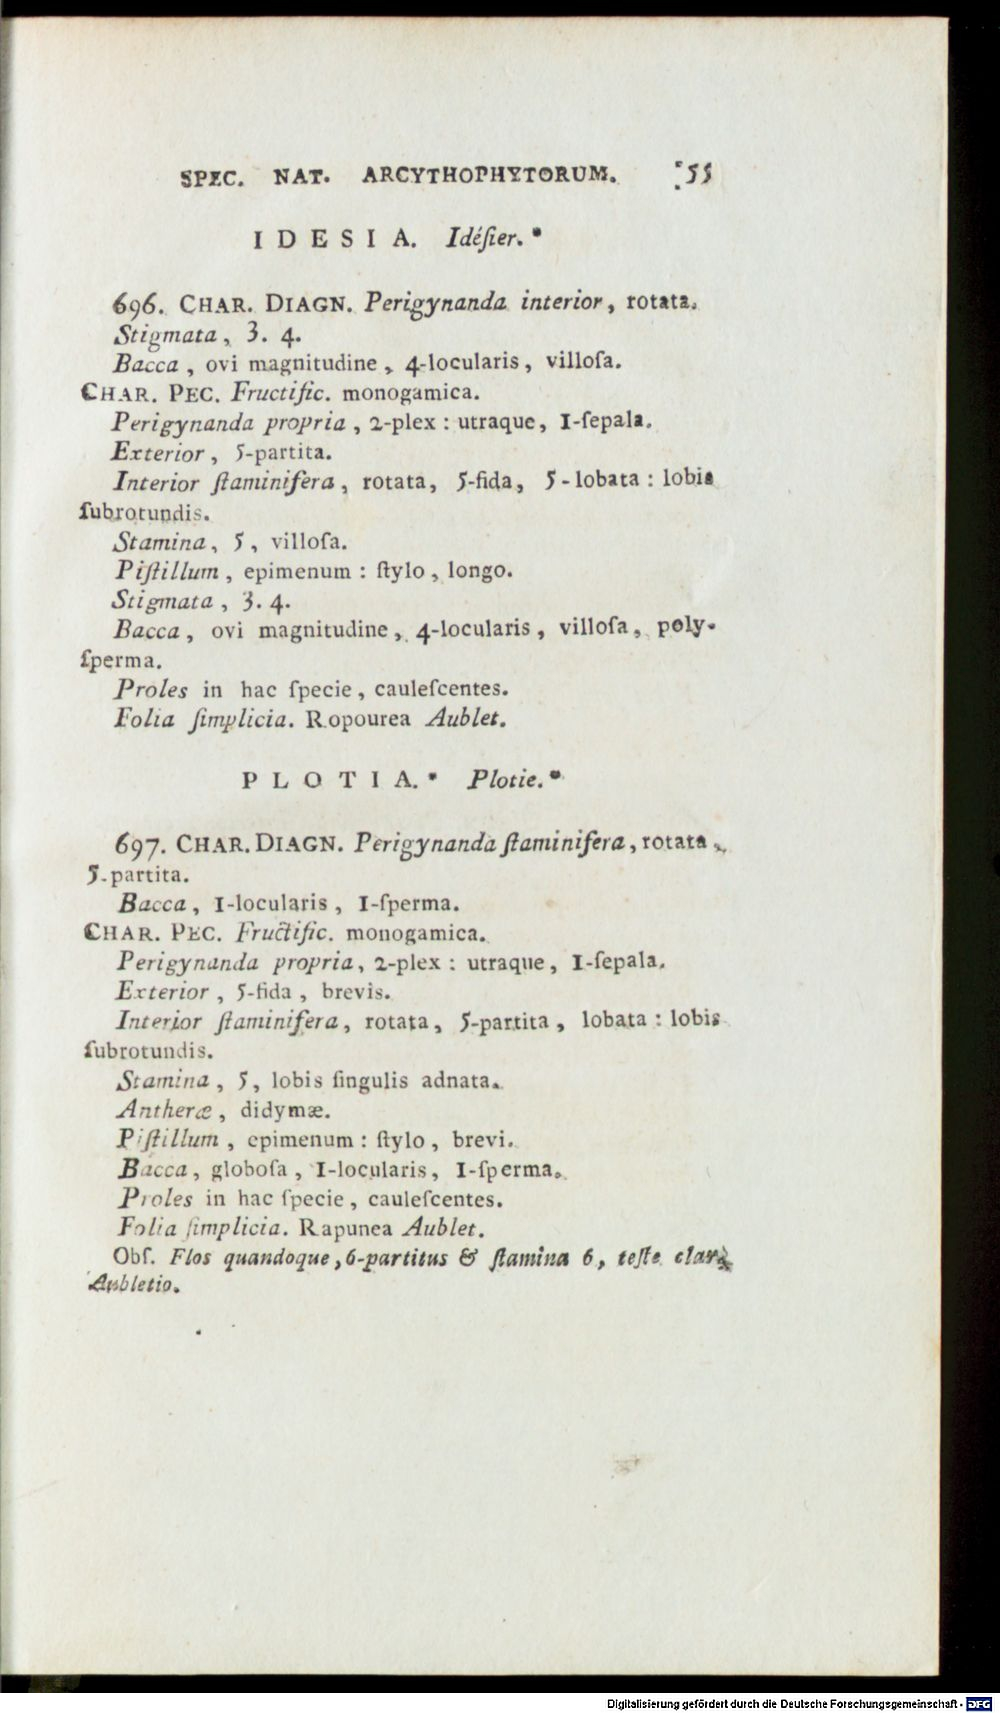 SPEC. NAT. ARCYTHOPHYTORUM. 55
IDESIA. Idéſier.*
696. CHAR. DIAGN. Perigynanda interior, rotata.
Stigmata, 3. 4.
Bacca, ovi magnitudine, 4-locularis, villoſa.
CHAR. PEC. Fructific. monogamica.
Perigynanda propria, 2-plex : utraque, 1-ſepala.
Exterior, 5-partita.
Interior ſtaminifera, rotata, 5-fida, 5-lobata : lobis
ſubrotundis.
Stamina, 5, villoſa.
Piſtillum, epimenum : ſtylo, longo.
Stigmata, 3. 4.
Bacca, ovi magnitudine, 4-locularis, villoſa, poly-
ſperma.
Proles in hac ſpecie, cauleſcentes.
Folia ſimplicia. Ropourea Aublet.
PLOTIA.* Plotie.*
697. CHAR. DIAGN. Perigynanda ſtaminifera, rotata,
5-partita.
Bacca, 1-locularis, 1-ſperma.
CHAR. PEC. Fructific. monogamica.
Perigynanda propria, 2-plex : utraque, 1-ſepala.
Exterior, 5-fida, brevis.
Interior ſtaminifera, rotata, 5-partita, lobata : lobis
ſubrotundis.
Stamina, 5, lobis ſingulis adnata.
Antheræ, didymæ.
Piſtillum, epimenum : ſtylo, brevi.
Bacca, globoſa, 1-locularis, 1-ſperma.
Proles in hac ſpecie, cauleſcentes.
Folia ſimplicia. Rapunea Aublet.
Obſ. Flos quandoque, 6-partitus & ſtamina 6, teſte
Aubletio.
Digitalisierung gefördert durch die Deutsche Forschungsgemeinschaft - DFG